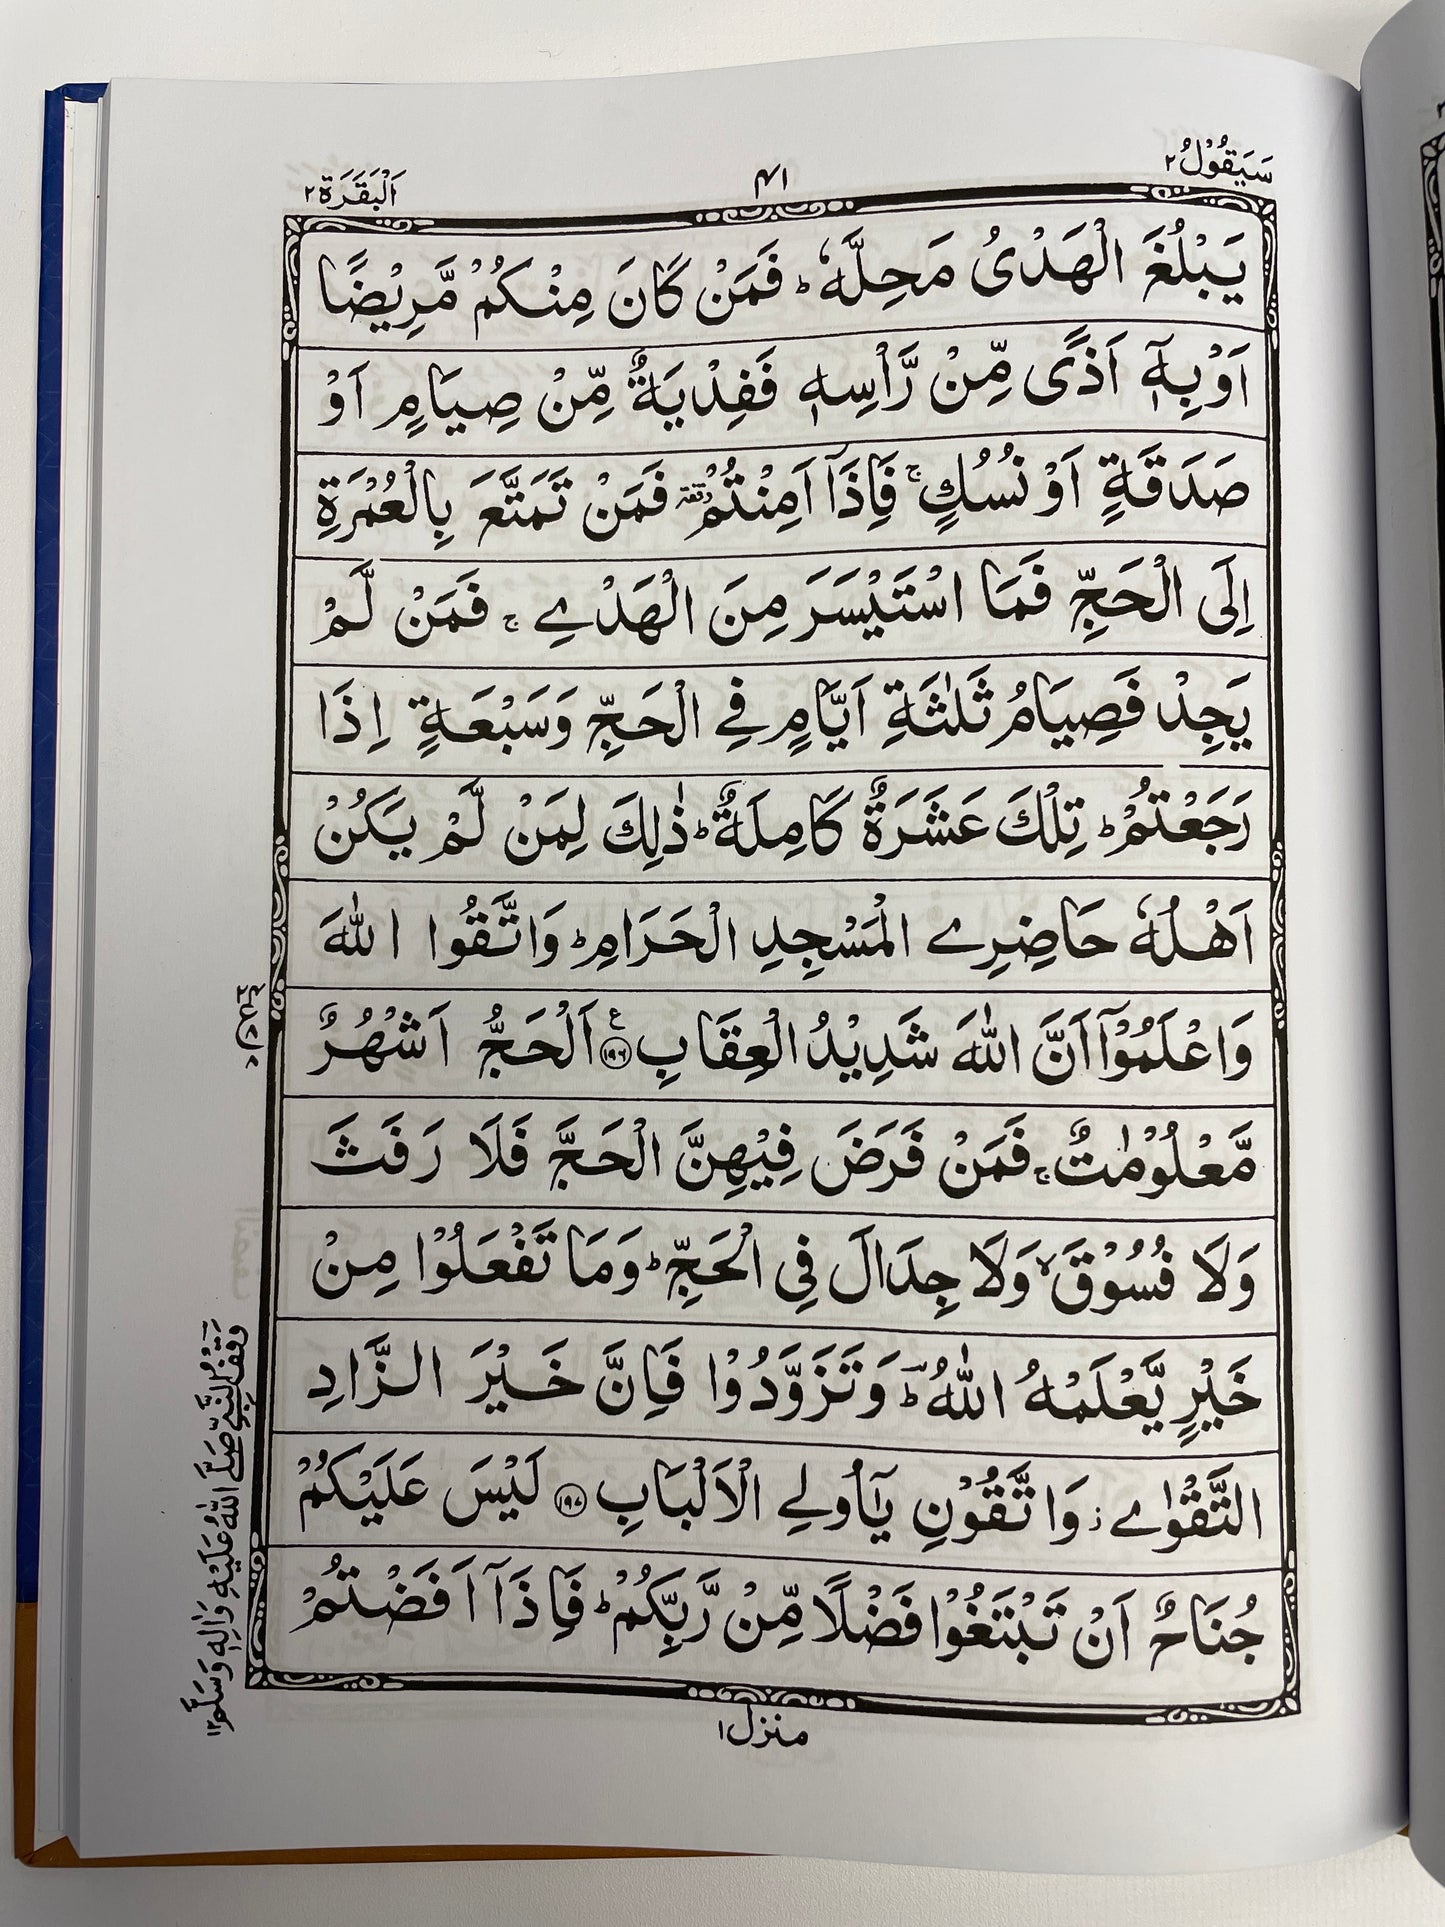 سَيَقُوْلُ ٢
٤١
اَلْبَقَرَة ٢
يَبْلُغَ الْهَدْىُ مَحِلَّهٗ ؕ فَمَنْ كَانَ مِنْكُمْ مَّرِيْضًا
اَوْ بِهٖۤ اَذًى مِّنْ رَّاْسِهٖ فَفِدْيَةٌ مِّنْ صِيَامٍ اَوْ
صَدَقَةٍ اَوْ نُسُكٍ ۚ فَاِذَاۤ اَمِنْتُمْ وقفة فَمَنْ تَمَتَّعَ بِالْعُمْرَةِ
اِلَى الْحَجِّ فَمَا اسْتَيْسَرَ مِنَ الْهَدْىِ ۚ فَمَنْ لَّمْ
يَجِدْ فَصِيَامُ ثَلٰثَةِ اَيَّامٍ فِى الْحَجِّ وَسَبْعَةٍ اِذَا
رَجَعْتُمْ ؕ تِلْكَ عَشَرَةٌ كَامِلَةٌ ؕ ذٰلِكَ لِمَنْ لَّمْ يَكُنْ
اَهْلُهٗ حَاضِرِى الْمَسْجِدِ الْحَرَامِ ؕ وَاتَّقُوا اللّٰهَ
وَاعْلَمُوْۤا اَنَّ اللّٰهَ شَدِيْدُ الْعِقَابِ ۝١٩٦ ع اَلْحَجُّ اَشْهُرٌ
مَّعْلُوْمٰتٌ ۚ فَمَنْ فَرَضَ فِيْهِنَّ الْحَجَّ فَلَا رَفَثَ
وَلَا فُسُوْقَ ۙ وَلَا جِدَالَ فِى الْحَجِّ ؕ وَمَا تَفْعَلُوْا مِنْ
خَيْرٍ يَّعْلَمْهُ اللّٰهُ ؔؕ وَتَزَوَّدُوْا فَاِنَّ خَيْرَ الزَّادِ
التَّقْوٰى ؗ وَاتَّقُوْنِ يٰۤاُولِى الْاَلْبَابِ ۝١٩٧ لَيْسَ عَلَيْكُمْ
جُنَاحٌ اَنْ تَبْتَغُوْا فَضْلًا مِّنْ رَّبِّكُمْ ؕ فَاِذَاۤ اَفَضْتُمْ
منزل ١
وَقْفُ النَّبِيِّ صَلَّى اللّٰهُ عَلَيْهِ وَاٰلِهٖ وَسَلَّمَ ١٢